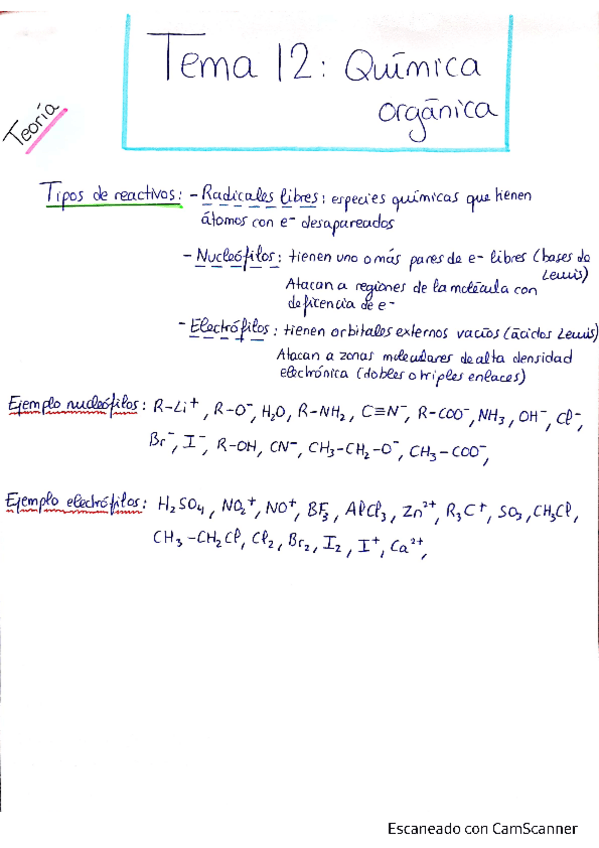 Tema 12: Química
orgánica
Teoría
Tipos de reactivos: - Radicales libres: especies químicas que tienen
átomos con e- desapareados
- Nucleófilos: tienen uno o más pares de e- libres (bases de
Lewis)
Atacan a regiones de la molécula con
deficencia de e-
- Electrófilos: tienen orbitales externos vacíos (ácidos Lewis)
Atacan a zonas moleculares de alta densidad
electrónica (dobles o triples enlaces)
Ejemplo nucleófilos: R-Li⁺, R-O⁻, H₂O, R-NH₂, C≡N⁻, R-COO⁻, NH₃, OH⁻, Cl⁻,
Br⁻, I⁻, R-OH, CN⁻, CH₃-CH₂-O⁻, CH₃-COO⁻,
Ejemplo electrófilos: H₂SO₄, NO₂⁺, NO⁺, BF₃, AlCl₃, Zn²⁺, R₃C⁺, SO₃, CH₃Cl,
CH₃-CH₂Cl, Cl₂, Br₂, I₂, I⁺, Ca²⁺,
Escaneado con CamScanner